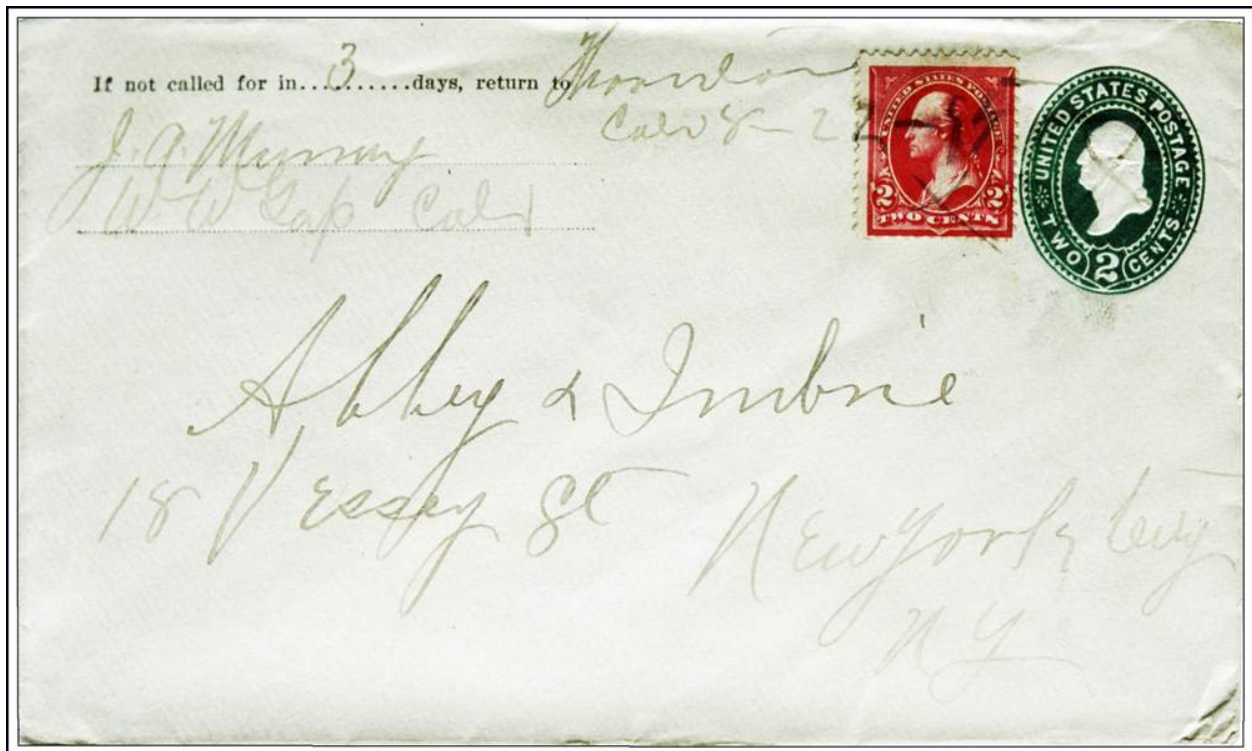 If not called for in....3......days, return to
J. A. Murray
W. W. Gap Cal
8-22-
UNITED STATES POSTAGE
2 2
TWO CENTS
UNITED STATES POSTAGE
TWO 2 CENTS
Abbey & Imbrie
18 Vessey St New York City
N Y